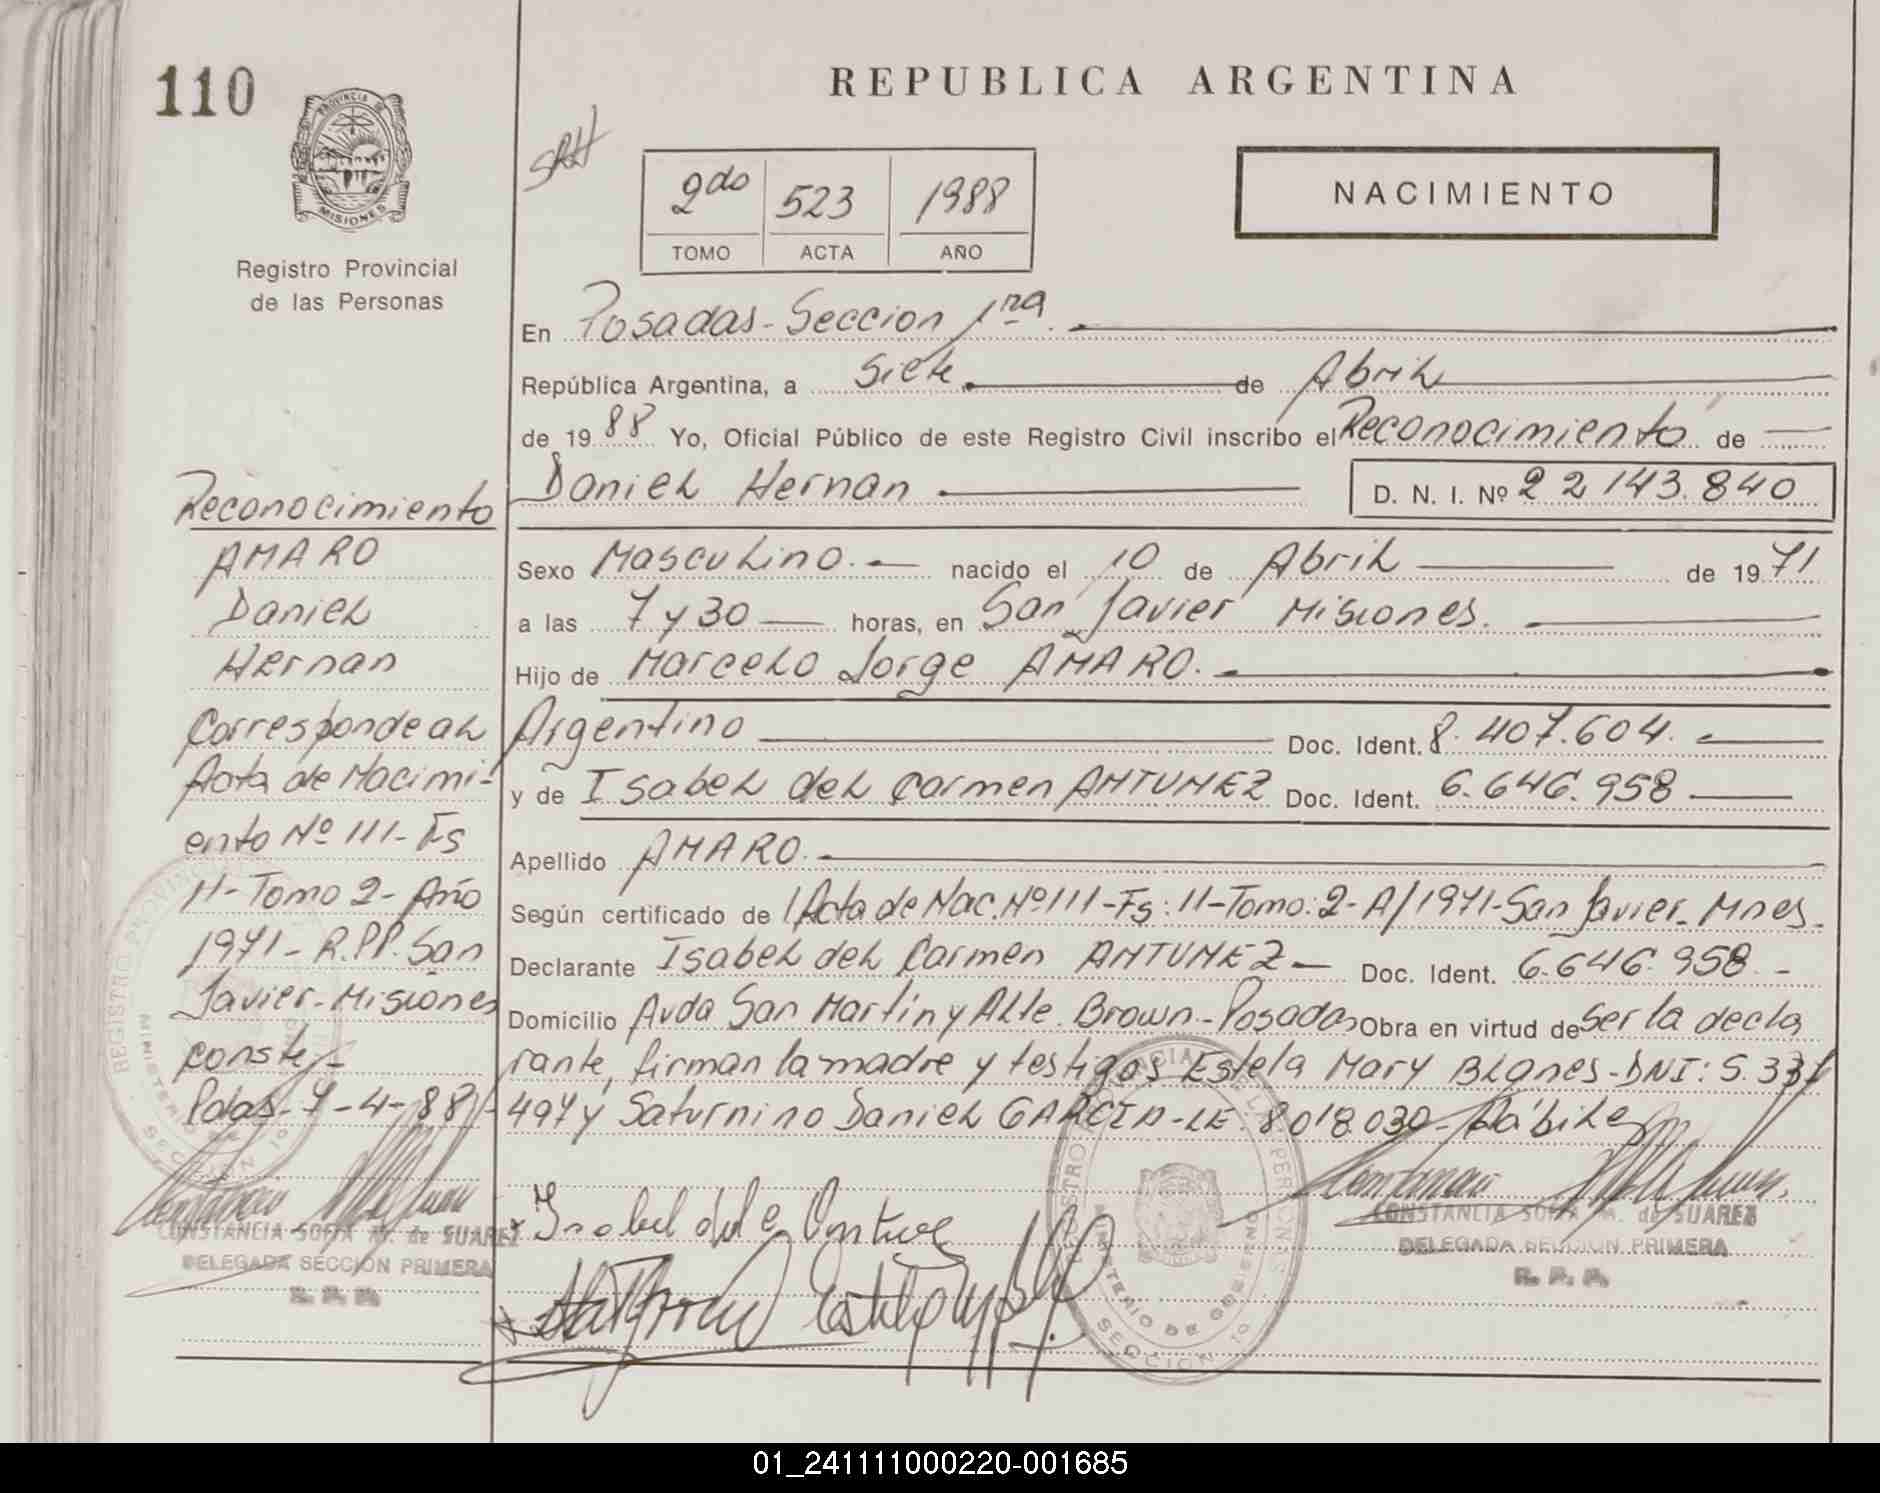 110
REPUBLICA ARGENTINA
PROVINCIA DE
MISIONES
Registro Provincial
de las Personas
2do 523 1988
TOMO ACTA AÑO
NACIMIENTO
En Posadas - Seccion 1ra.
República Argentina, a Siete de Abril
de 1988 Yo, Oficial Público de este Registro Civil inscribo el Reconocimiento de
Daniel Hernan D. N. I. Nº 22 143.840
Sexo Masculino. nacido el 10 de Abril de 1971
a las 7 y 30 horas, en San Javier Misiones.
Hijo de Marcelo Jorge AMARO.
Argentino Doc. Ident. 8.407.604.
y de Isabel del Carmen ANTUNEZ Doc. Ident. 6.646.958
Apellido AMARO.
Según certificado de Acta de Nac. Nº 111 - Fs: 11 - Tomo: 2 - A/1971 - San Javier - Mnes.
Declarante Isabel del Carmen ANTUNEZ - Doc. Ident. 6.646.958 -
Domicilio Avda San Martin y Alte. Brown - Posadas Obra en virtud de ser la decla
rante, firman la madre y testigos Estela Mary Blanes - DNI: 5.331
497 y Saturnino Daniel GARCIA - LE. 8018.030 - Hábiles
Reconocimiento
AMARO
Daniel
Hernan
Corresponde al
Acta de Nacimi-
ento Nº 111 - Fs
11 - Tomo 2 - Año
1971 - R.PP. San
Javier - Misiones
conste -
Pdas - 7 - 4 - 88 -
CONSTANCIA SOFIA M. de SUAREZ
DELEGADA SECCION PRIMERA
R. P. P.
CONSTANCIA SOFIA M. de SUAREZ
DELEGADA SECCION PRIMERA
R. P. P.
MINISTERIO DE GOBIERNO
SECCION 1ª
01_241111000220-001685